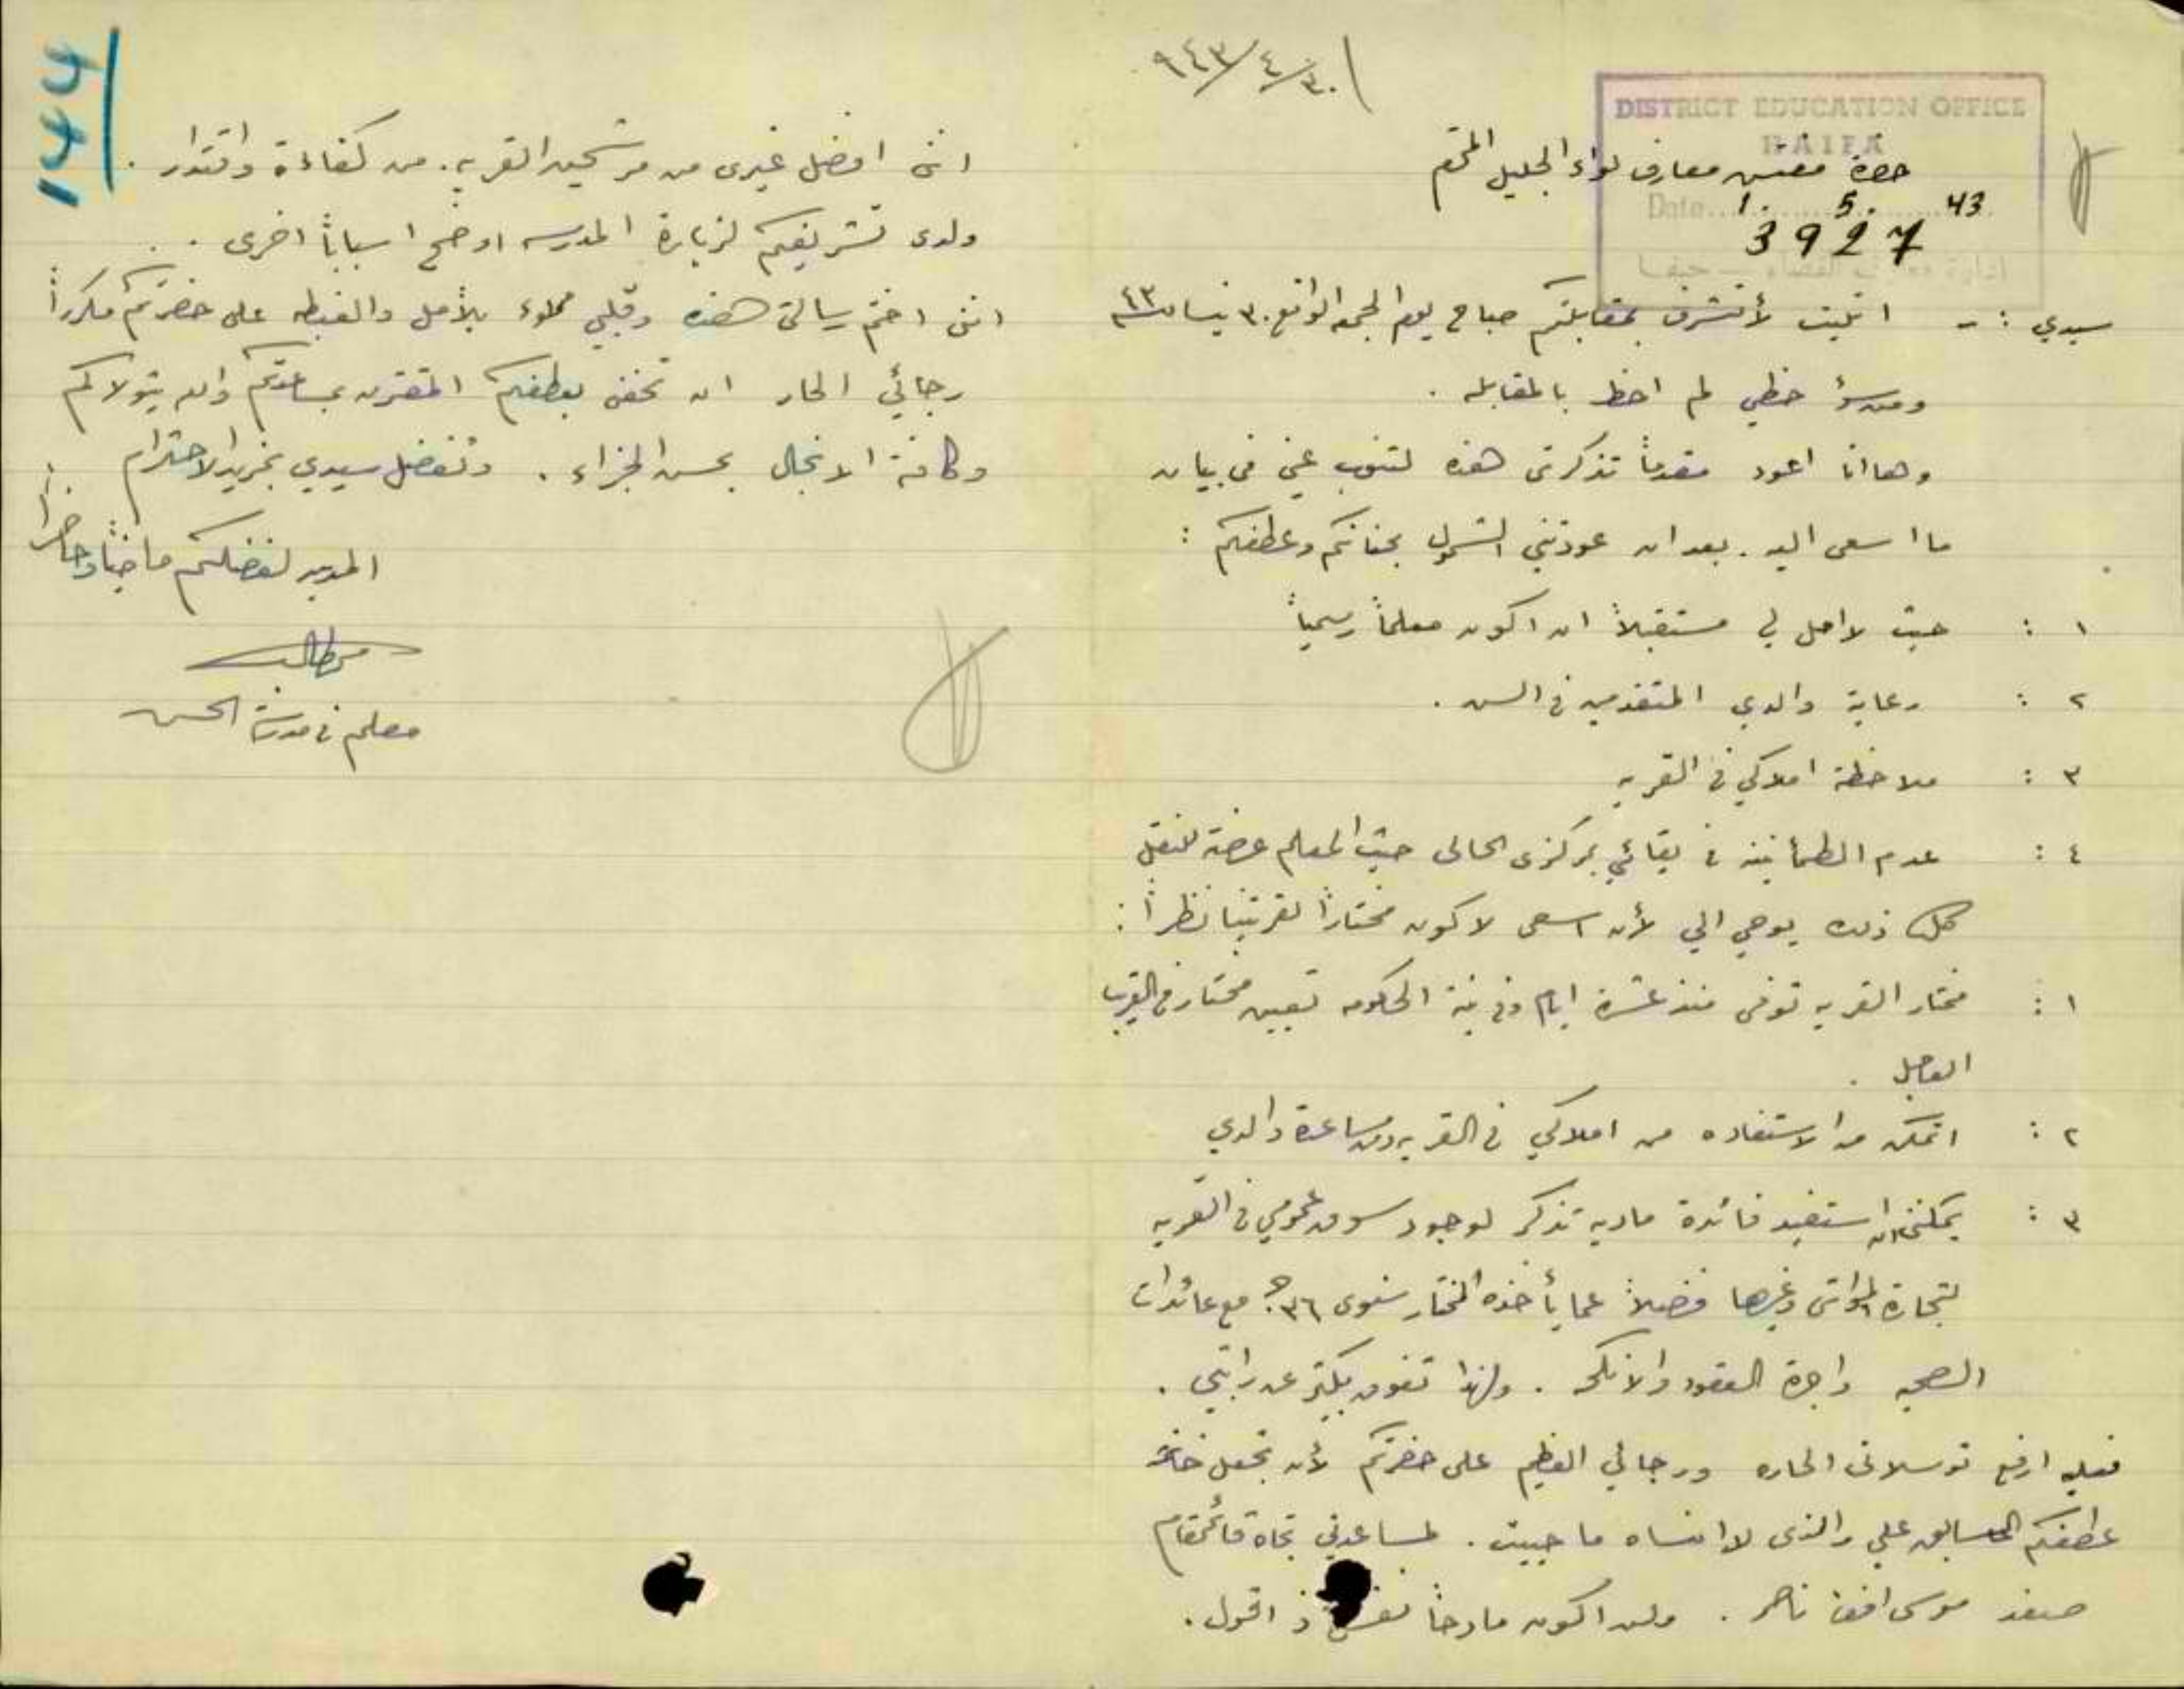 ٩٤٣/٤/٣٠
DISTRICT EDUCATION OFFICE
HAIFA
حضرة مفتش معارف لواء الجليل المحترم
Date 1. 5. 43
3927
سيدي :- اتيت لأتشرف بمقابلتكم صباح يوم الجمعه الواقع ٣٠ نيسان ٩٤٣
ومن سؤ حظي لم احظ بالمقابله .
وها انا اعود مقدماً تذكرتي هذه لتنوب عني في بيان
ما اسعى اليه . بعد ان عودتني الشمول بحنانكم وعطفكم :
١ : حيث لا امل لي مستقبلاً ان اكون معلماً رسمياً
٢ : رعاية والدي المتقدمين في السن .
٣ : ملاحظة املاكي في القريه
٤ : عدم الطمأنينه في بقائي بمركزي الحالي حيث المعلم عرضة للنقل
كل ذلك يوحي الي لأن اسعى لاكون مختاراً لقريتنا نظراً :
١ : مختار القريه توفي منذ عشرة ايام وفي نية الحكومه تعيين مختار في القريب
العاجل .
٢ : اتمكن من الاستفاده من املاكي في القريه ومن مساعدة والدي
٣ : يمكنني ان استفيد فائدة ماديه تذكر لوجود سوق عمومي في القريه
لتجارة المواشي وغيرها فضلاً عما يأخذه المختار سنوي ٣٦ ج مع عائدات
الصحيه واجرة العقود والانكحه . ولهذا تفوق بكثير عن راتبي .
فعليه ارفع توسلاتي الحاره ورجائي العظيم على حضرتكم لأن تجعل خاتمة
عطفكم السابق علي والذي لا انساه ما حييت . لمساعدتي تجاه قائمقام
صفد موسى افندي ناصر . ولن اكون مادحاً اذ اقول .
144
انني افضل غيري من مرشحين القريه . من كفاءة واقتدار .
ولدى تشريفكم لزيارة المدرسه اوضح اسباباً اخرى . .
انني اختم رسالتي هذه وقلبي مملوء بالأمل والغبطه على حضرتكم مكرراً
رجائي الحار ان تخفني بعطفكم المقترن بمساعدتكم والله يتولاكم
وكافة الانجال بحسن الجزاء . وتفضل سيدي بمزيد الاحترام .
المدين لفضلكم ماضياً وحاضراً
معلم في مدرسة الحسن